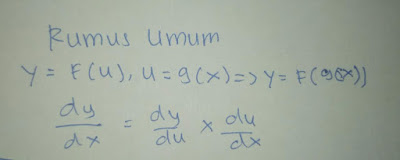 Rumus Umum
y = F(u), u = g(x) => y = F(g(x))
dy/dx = dy/du × du/dx